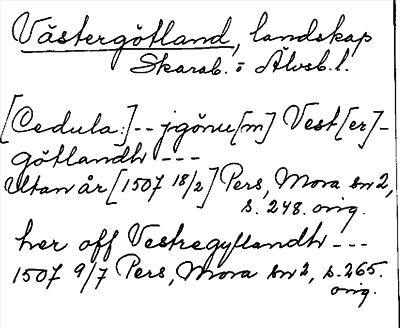 Västergötland, landskap
Skarab. o Älvsb. l.
[Cedula:] -- jgönu[m] Vest[er]-
götlandh ---
Utan år [1507 18/2] Pers, Mora sn 2,
s. 248. orig.
her off Vestregytlandh ---
1507 9/7 Pers, Mora sn 2, s. 265.
orig.